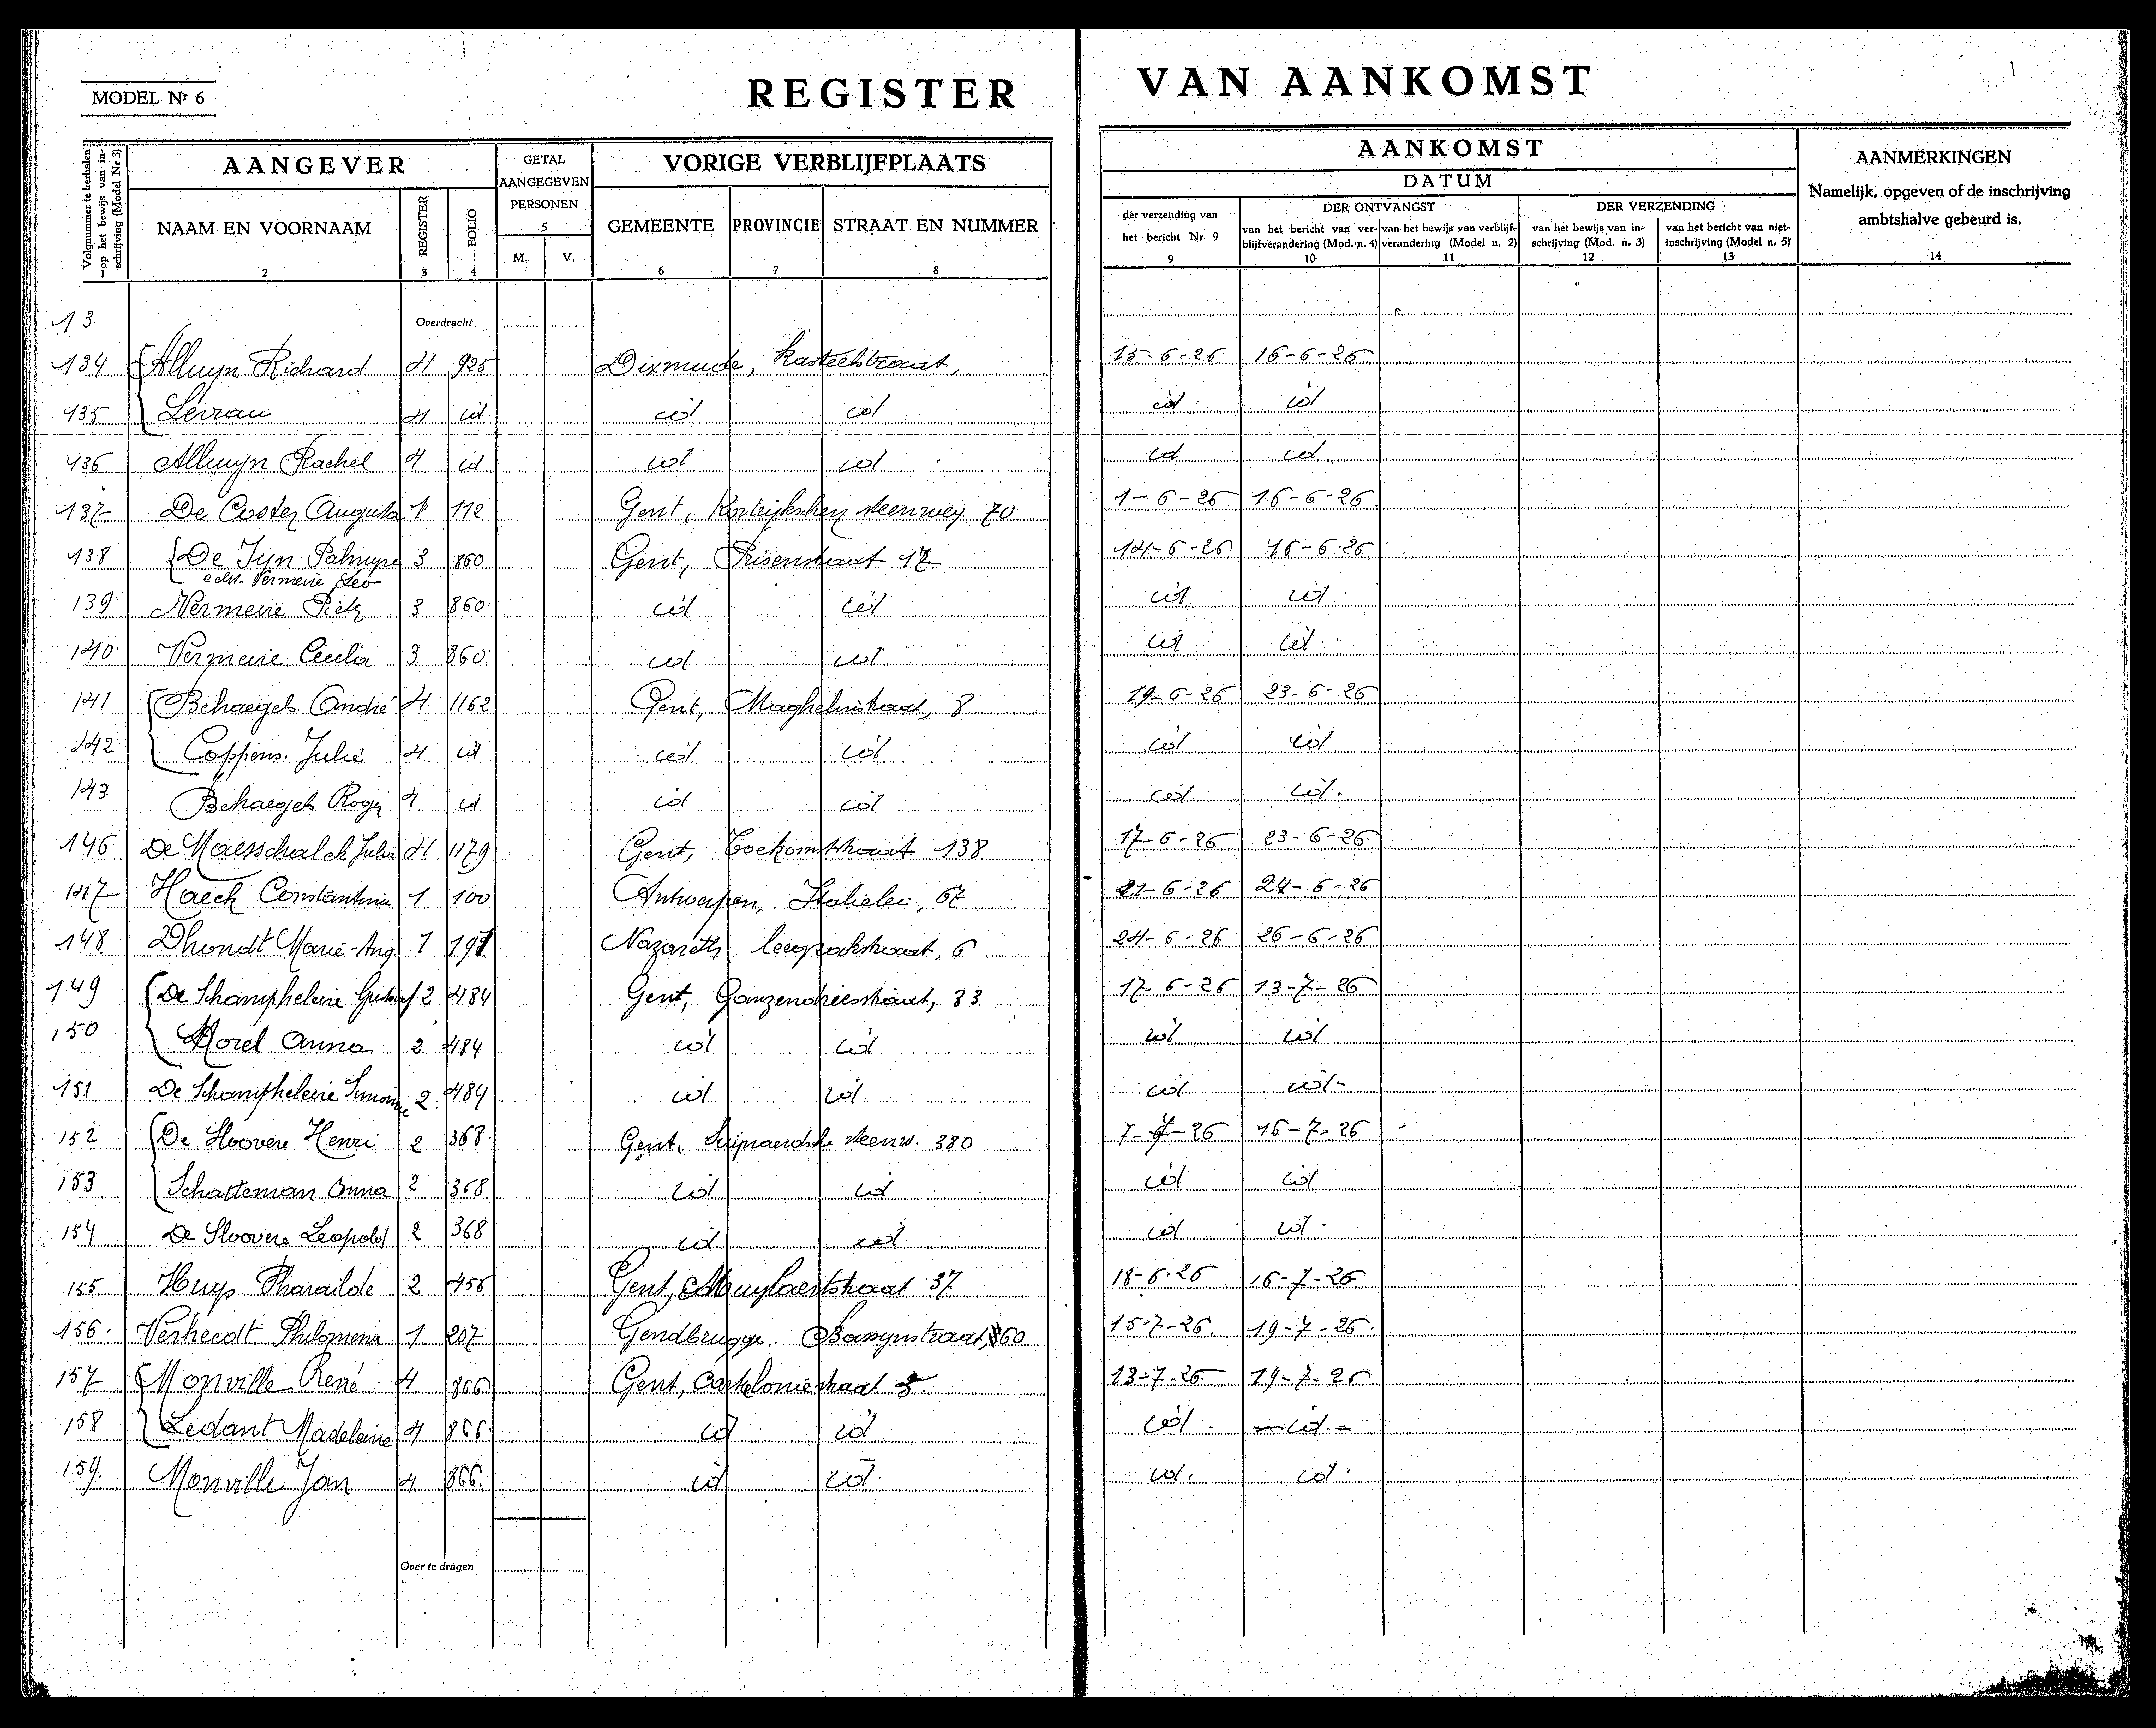 MODEL Nr 6
REGISTER VAN AANKOMST
Volgnummer te herhalen op het bewijs van inschrijving (Model Nr 3)
AANGEVER
GETAL AANGEGEVEN PERSONEN
VORIGE VERBLIJFPLAATS
AANKOMST
DATUM
AANMERKINGEN
Namelijk, opgeven of de inschrijving ambtshalve gebeurd is.
NAAM EN VOORNAAM REGISTER FOLIO M. V. GEMEENTE PROVINCIE STRAAT EN NUMMER
der verzending van het bericht Nr 9
DER ONTVANGST
van het bericht van verblijfverandering (Mod. n. 4) van het bewijs van verblijfverandering (Model n. 2)
DER VERZENDING
van het bewijs van inschrijving (Mod. n. 3) van het bericht van niet-inschrijving (Model n. 5)
2 3 4 5 6 7 8 9 10 11 12 13 14
13 Overdracht
134 Alluyn Richard 4 925 Dixmude, Kasteelstraat, 15-6-26 16-6-26
135 Levrau 4 id id id id id
136 Alluyn Rachel 4 id id id id id
137 De Coster Augusta 1 112 Gent, Kortrijkschen steenweg 70 1-6-26 16-6-26
138 De Jyn Palmyre 3 860 Gent, 17 14-6-26 16-6-26
echt. Vermeire Leo
139 Vermeire Pieter 3 860 id id id id
140 Vermeire Cecilia 3 860 id id id id
141 Behaegels André 4 1162 Gent, Maghelinstraat, 8 19-6-26 23-6-26
142 Coppens Julie 4 id id id id id
143 Behaegels Roger 4 id id id id id
146 De Maesschalck Julia 4 1179 Gent, Toekomststraat 138 17-6-26 23-6-26
147 Haeck Constantina 1 100 Antwerpen, Italielei, 67 21-6-26 24-6-26
148 Dhondt Marie-Ang. 1 Nazareth 6 24-6-26 26-6-26
149 De Schampheleire Gustaaf 2 484 Gent, Ganzendriesstraat, 33 17-6-26 13-7-26
150 Morel Anna 2 484 id id id id
151 De Schampheleire Simonne 2 484 id id id id
152 De Sloovere Henri 2 368 Gent, steenw. 380 7-7-26 16-7-26
153 Schatteman Anna 2 368 id id id id
154 De Sloovere Leopold 2 368 id id id id
155 Huys Pharailde 2 456 Gent, 37 18-6-26 16-7-26
156 Verheedt Philomena 1 207 Gendbrugge, 15-7-26 19-7-26
157 Monville René 4 866 Gent, 13-7-26 19-7-26
158 Ledant Madeleine 4 866 id id id id
159 Monville Jan 4 866 id id id id
Over te dragen